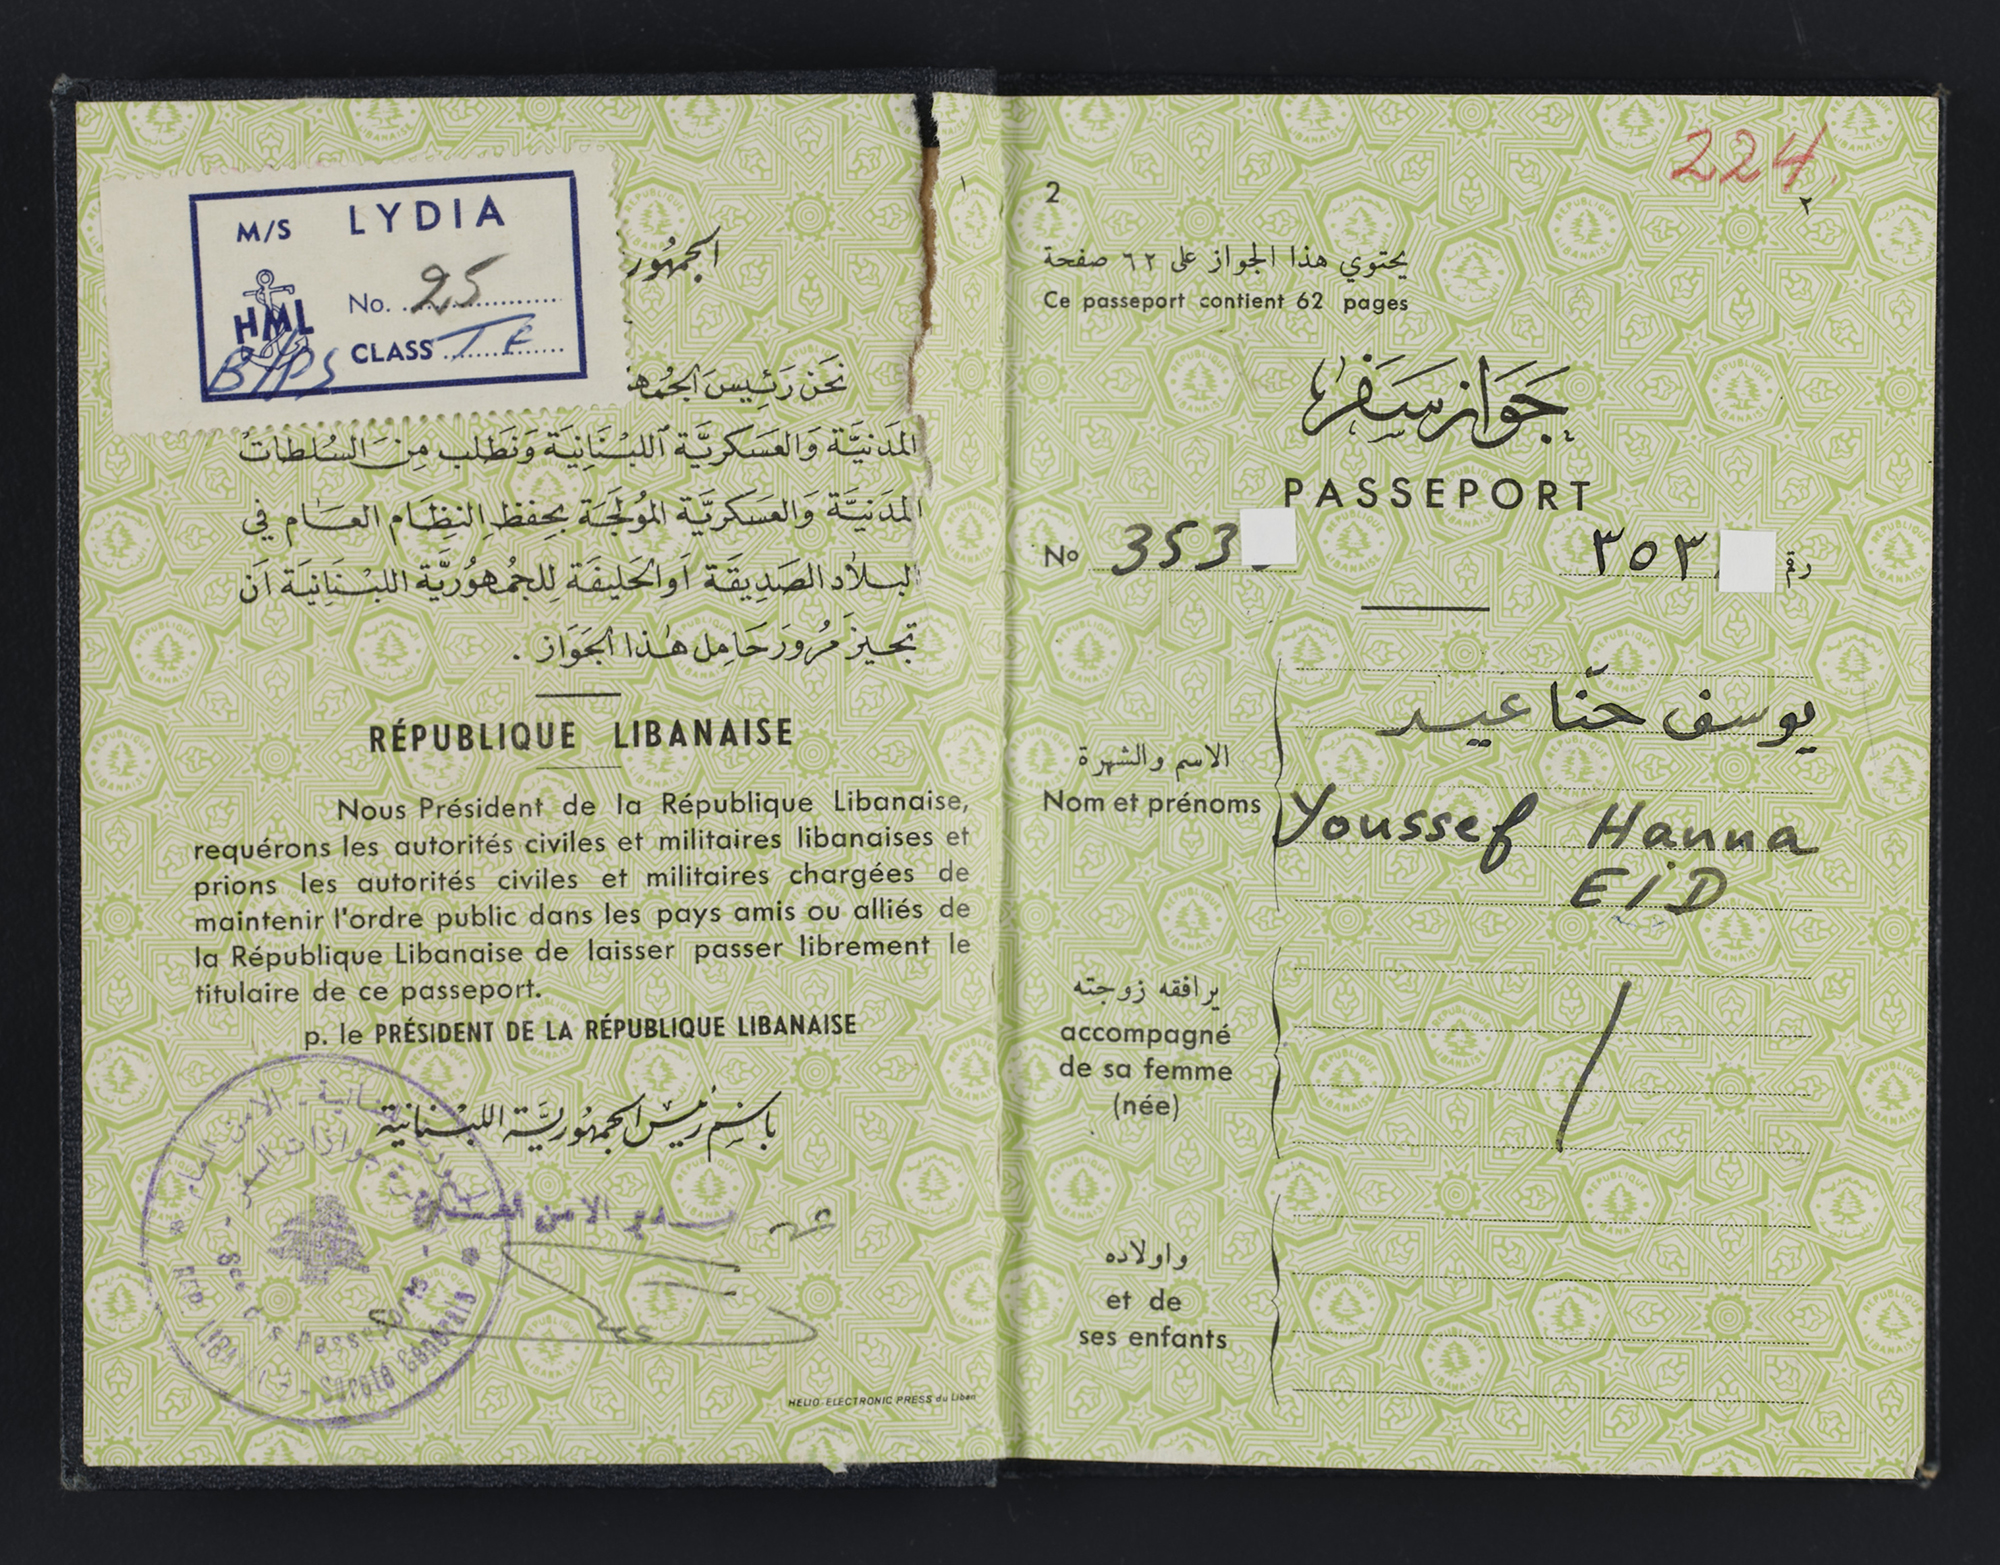 M/S LYDIA
No. 25
HML
CLASS T E
١
الجمهور
نحن رئيس الجمه
المدنية والعسكرية اللبنانية ونطلب من السلطات
المدنية والعسكرية المولجة بحفظ النظام العام في
البلاد الصديقة او الحليفة للجمهورية اللبنانية ان
تجيز مرور حامل هذا الجواز .
RÉPUBLIQUE LIBANAISE
Nous Président de la République Libanaise,
requérons les autorités civiles et militaires libanaises et
prions les autorités civiles et militaires chargées de
maintenir l'ordre public dans les pays amis ou alliés de
la République Libanaise de laisser passer librement le
titulaire de ce passeport.
p. le PRÉSIDENT DE LA RÉPUBLIQUE LIBANAISE
باسم رئيس الجمهورية اللبنانية
الامن العام
جوازات السفر
REP. LIBANAISE - Sureté Générale
HELIO-ELECTRONIC PRESS du Liban
224.
2
٢
يحتوي هذا الجواز على ٦٢ صفحة
Ce passeport contient 62 pages
جواز سفر
PASSEPORT
No 353
رقم ٣٥٣
يوسف حنّا عيد
الاسم والشهرة
Nom et prénoms
Youssef Hanna
EID
يرافقه زوجته
accompagné
de sa femme
(née)
واولاده
et de
ses enfants